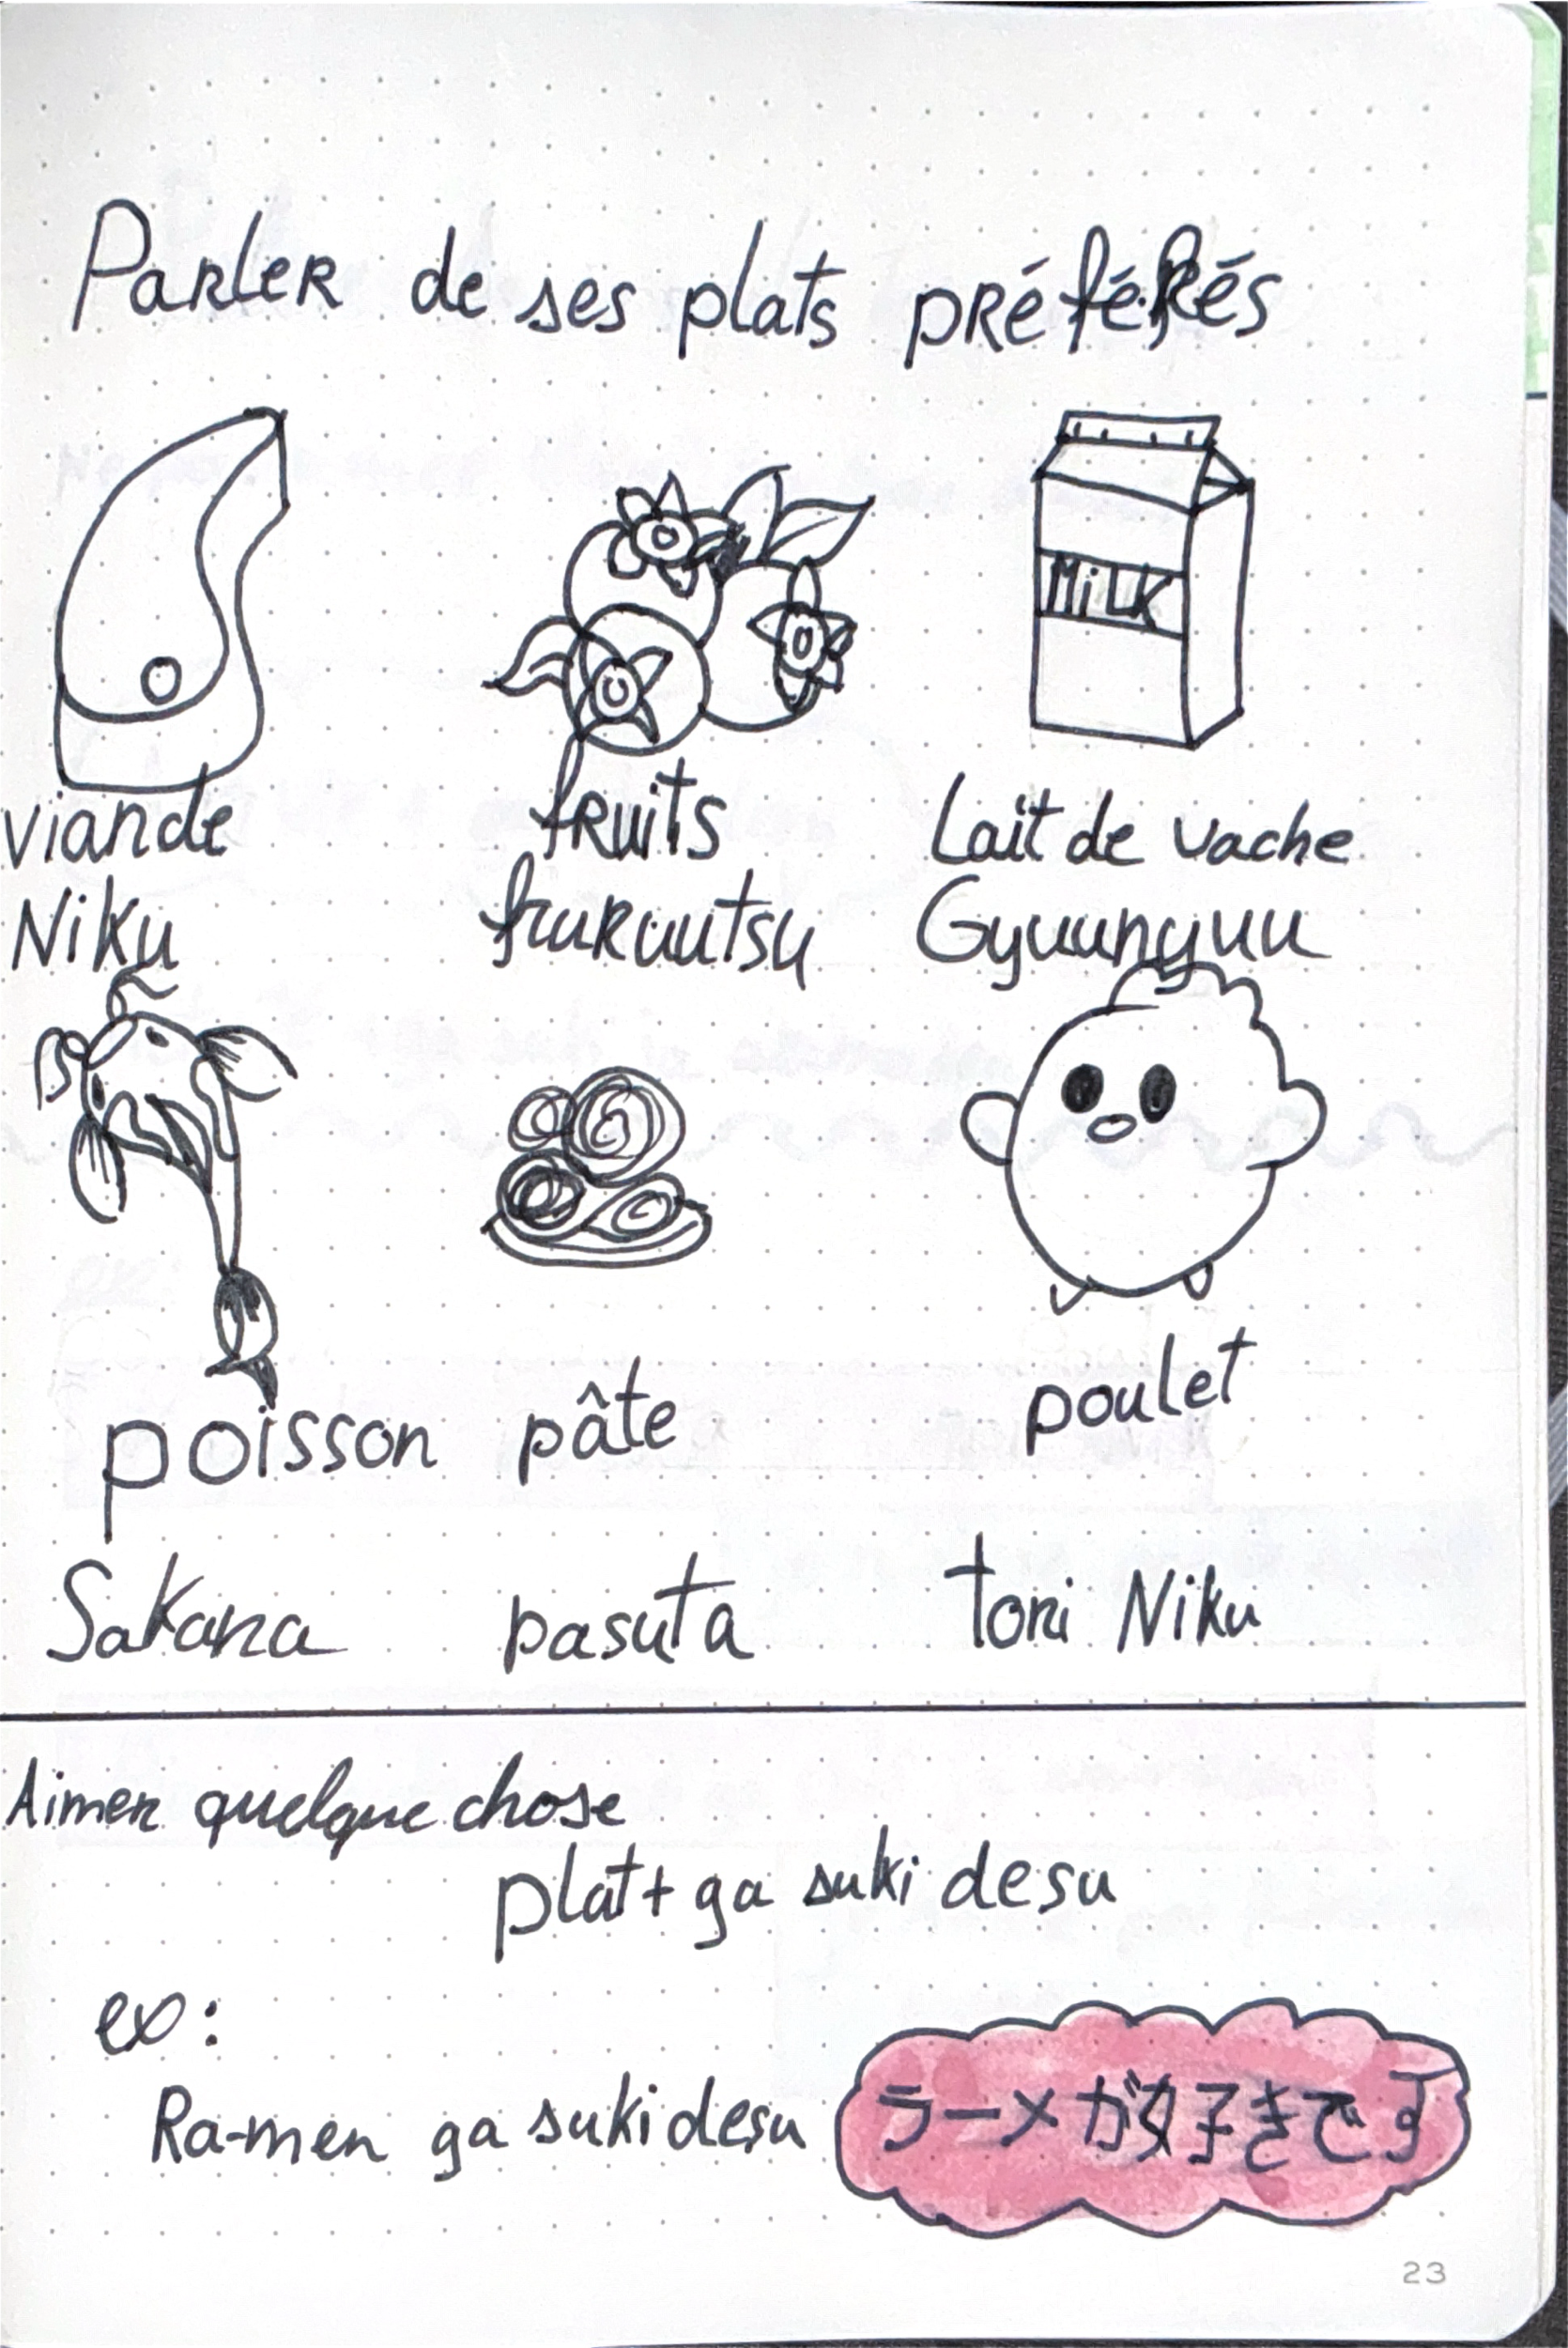 Parler de ses plats préférés
MiLK
viande
Niku
fruits
furuutsu
Lait de vache
Gyuunyuu
poisson
pâte
poulet
Sakana
pasuta
tori Niku
Aimer quelque chose
plat + ga suki desu
ex:
Ra-men ga suki desu
ラーメが好きです
23